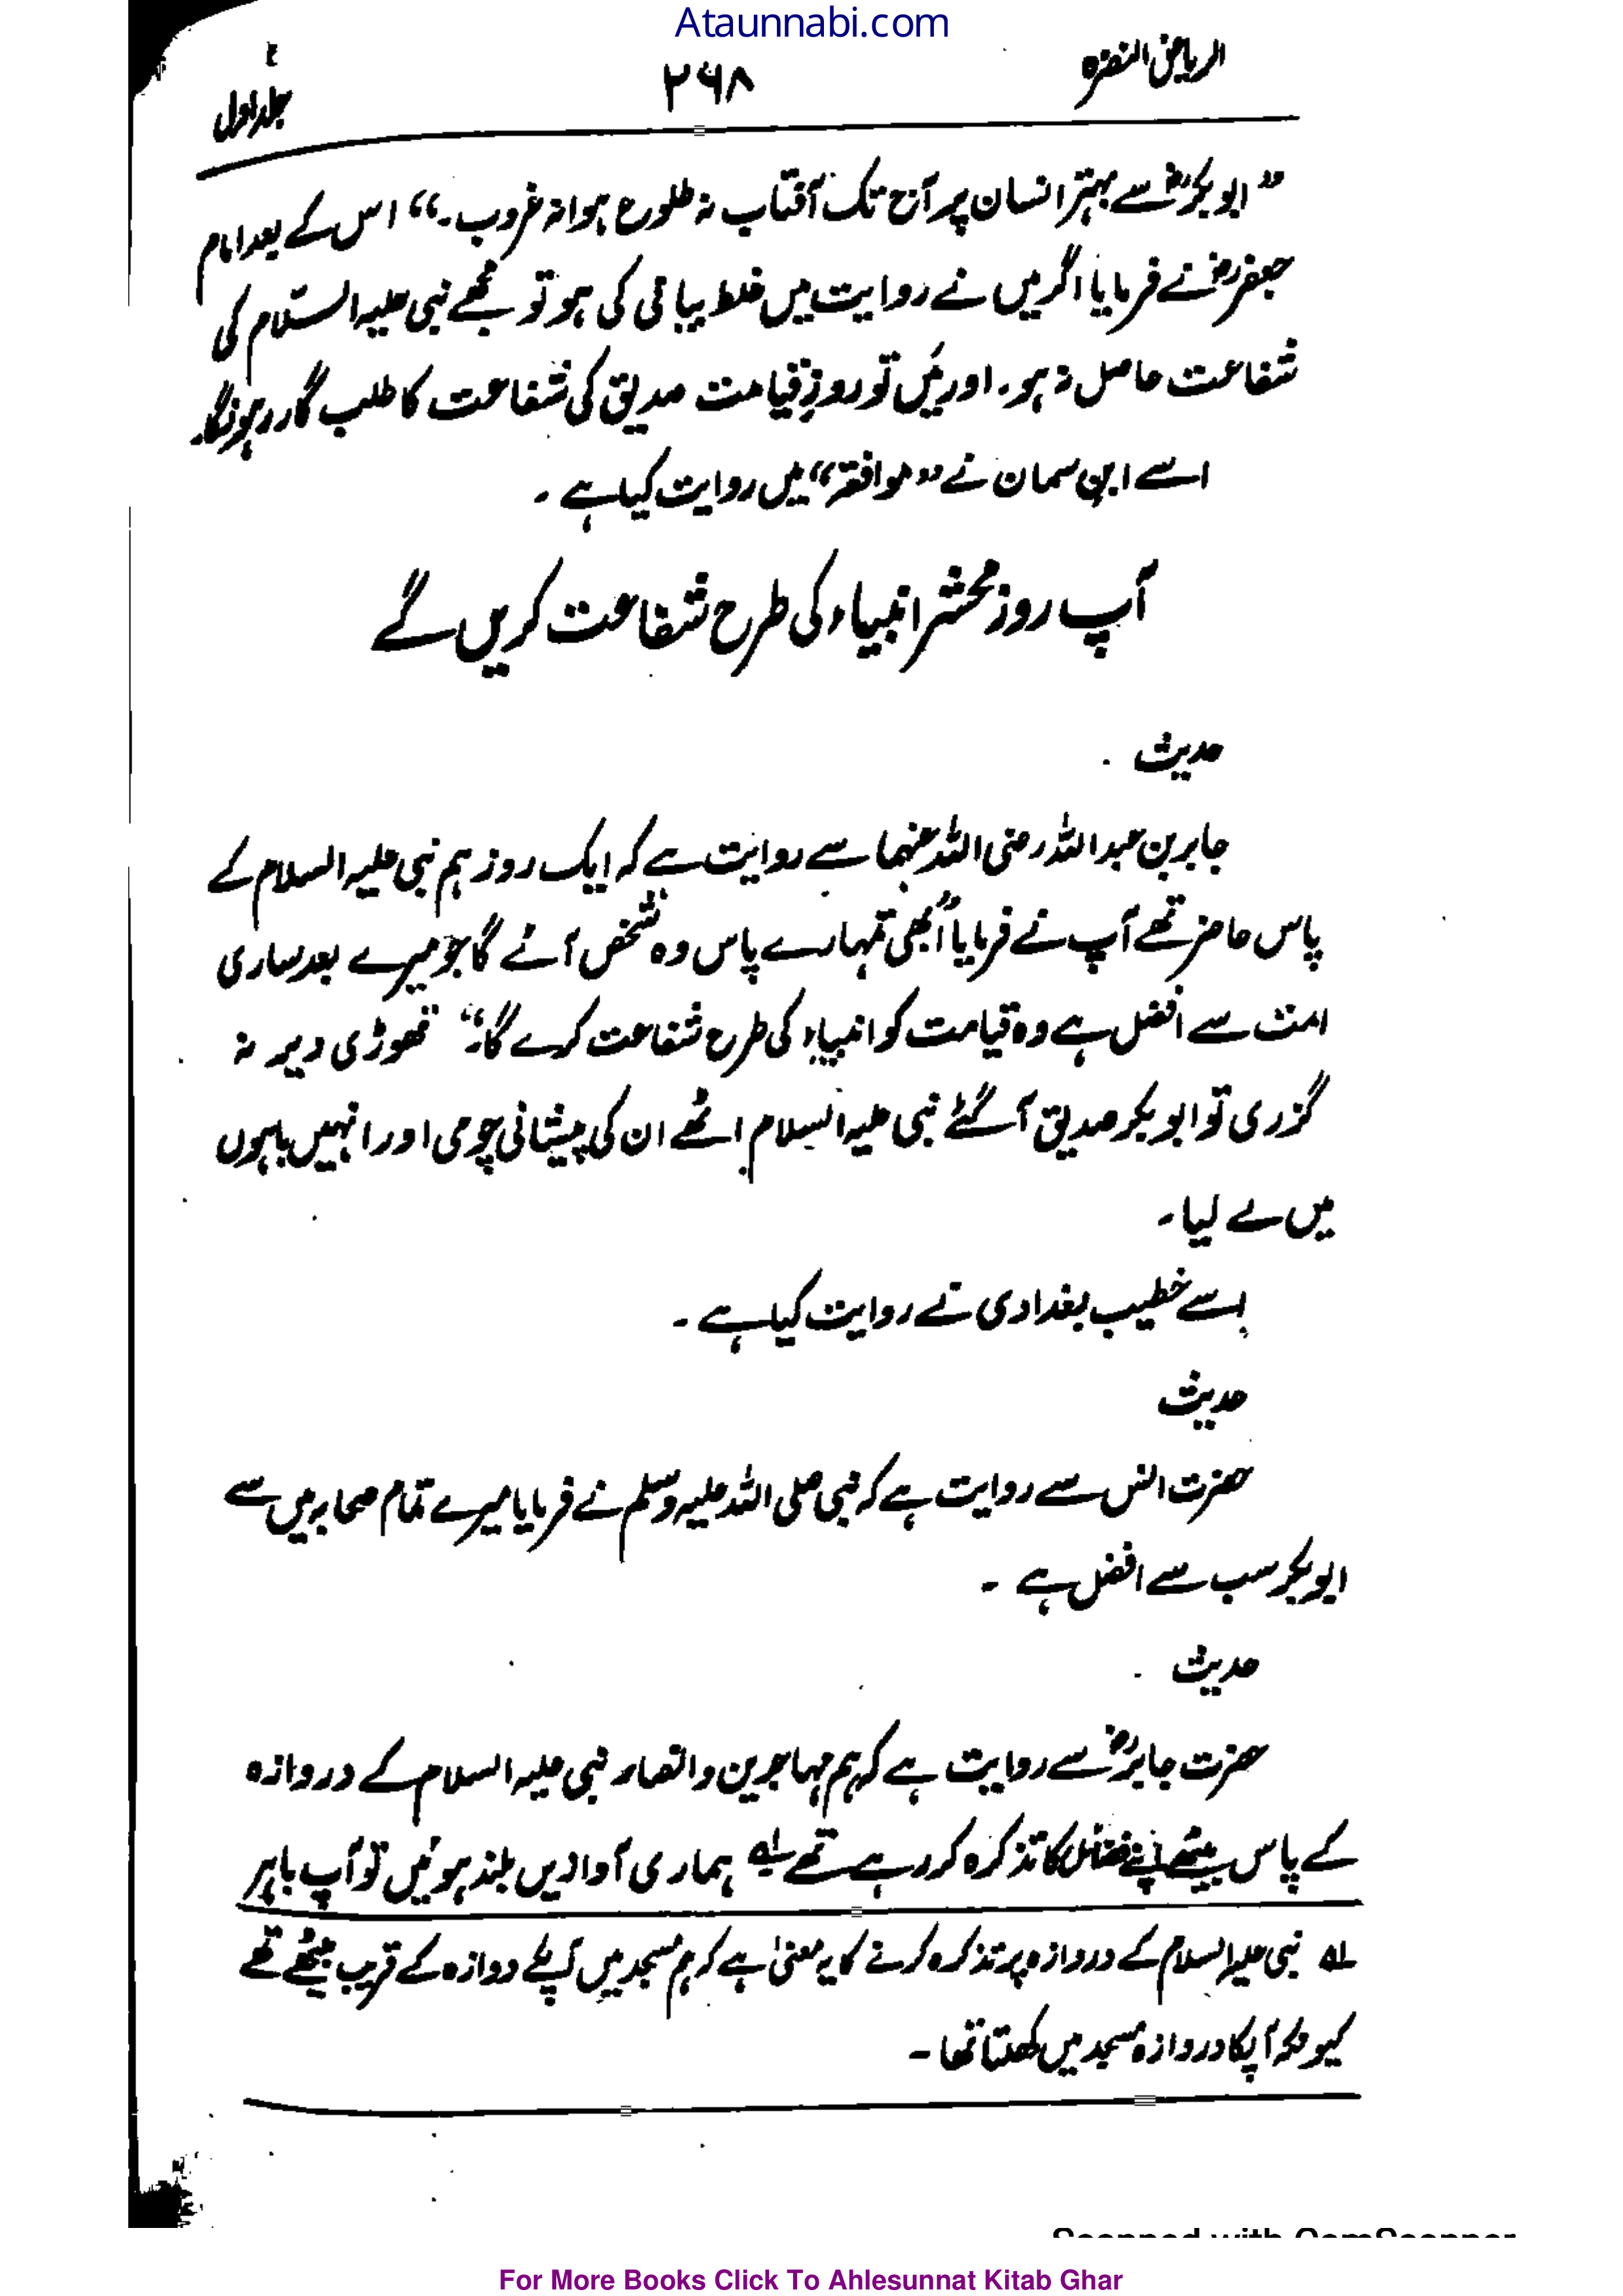 Ataunnabi.com
الریاض النضرہ
۲۶۸
جلد اول
”ابوبکرؓ سے بہتر انسان پر آج تک آفتاب نہ طلوع ہوا نہ غروب۔“ اس کے بعد امام
جعفرؓ نے فرمایا اگر میں نے روایت میں غلط بیانی کی ہو تو مجھے نبی علیہ السّلام کی
شفاعت حاصل نہ ہو۔ اور مَیں تو روزِ قیامت صدیق کی شفاعت کا طلب گار رہونگا۔
اسے ابن سمان نے ”موافقۃ“ میں روایت کیا ہے۔
آپ روز محشر انبیاء کی طرح شفاعت کریں گے
حدیث
جابر بن عبد اللہ رضی اللہ عنہما سے روایت ہے کہ ایک روز ہم نبی علیہ السلام کے
پاس حاضر تھے آپ نے فرمایا ”ابھی تمہارے پاس وہ شخص آئے گا جو میرے بعد ساری
امت سے افضل ہے وہ قیامت کو انبیاء کی طرح شفاعت کرے گا۔“ تھوڑی دیر نہ
گزری تو ابوبکر صدیق آگئے نبی علیہ السلام اٹھے ان کی پیشانی چومی اور انہیں باہوں
میں لے لیا۔
اسے خطیب بغدادی نے روایت کیا ہے۔
حدیث
حضرت انس سے روایت ہے کہ نبی صلی اللہ علیہ وسلم نے فرمایا میرے تمام صحابہ میں سے
ابوبکر سب سے افضل ہے۔
حدیث
حضرت جابرؓ سے روایت ہے کہ ہم مہاجرین و انصار نبی علیہ السلام کے دروازہ
کے پاس بیٹھے اپنے فضائل کا تذکرہ کر رہے تھے لہ ہماری آوازیں بلند ہوئیں تو آپ باہر
لہ نبی علیہ السلام کے دروازہ پر تذکرہ کرنے کا یہ معنیٰ ہے کہ ہم مسجد میں آپکے دروازہ کے قریب بیٹھے تھے
کیونکہ آپکا دروازہ مسجد میں کھلتا تھا۔
Scanned with CamScanner
For More Books Click To Ahlesunnat Kitab Ghar